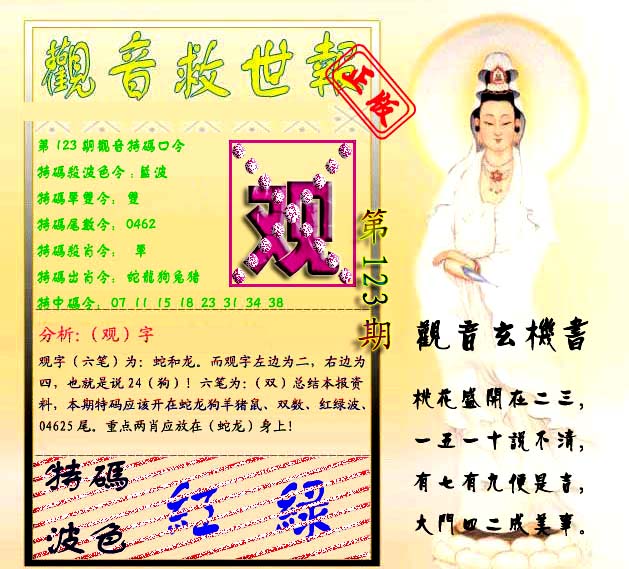 觀音救世報
正版
第123期觀音特碼口令
特碼殺波色令：藍波
特碼單雙令： 雙
特碼尾數令： 0462
特碼殺肖令： 單
特碼出肖令： 蛇龍狗兔猪
特中碼令：07 11 15 18 23 31 34 38
观
第123期
分析：（观）字
观字（六笔）为：蛇和龙。而观字左边为二，右边为
四，也就是说24（狗）！六笔为：（双）总结本报资
料，本期特码应该开在蛇龙狗羊猪鼠、双数、红绿波、
04625尾。重点两肖应放在（蛇龙）身上！
特碼
波色
紅 綠
觀音玄機書
桃花盛開在二三，
一五一十說不清，
有七有九便是吉，
大門四二成美事。